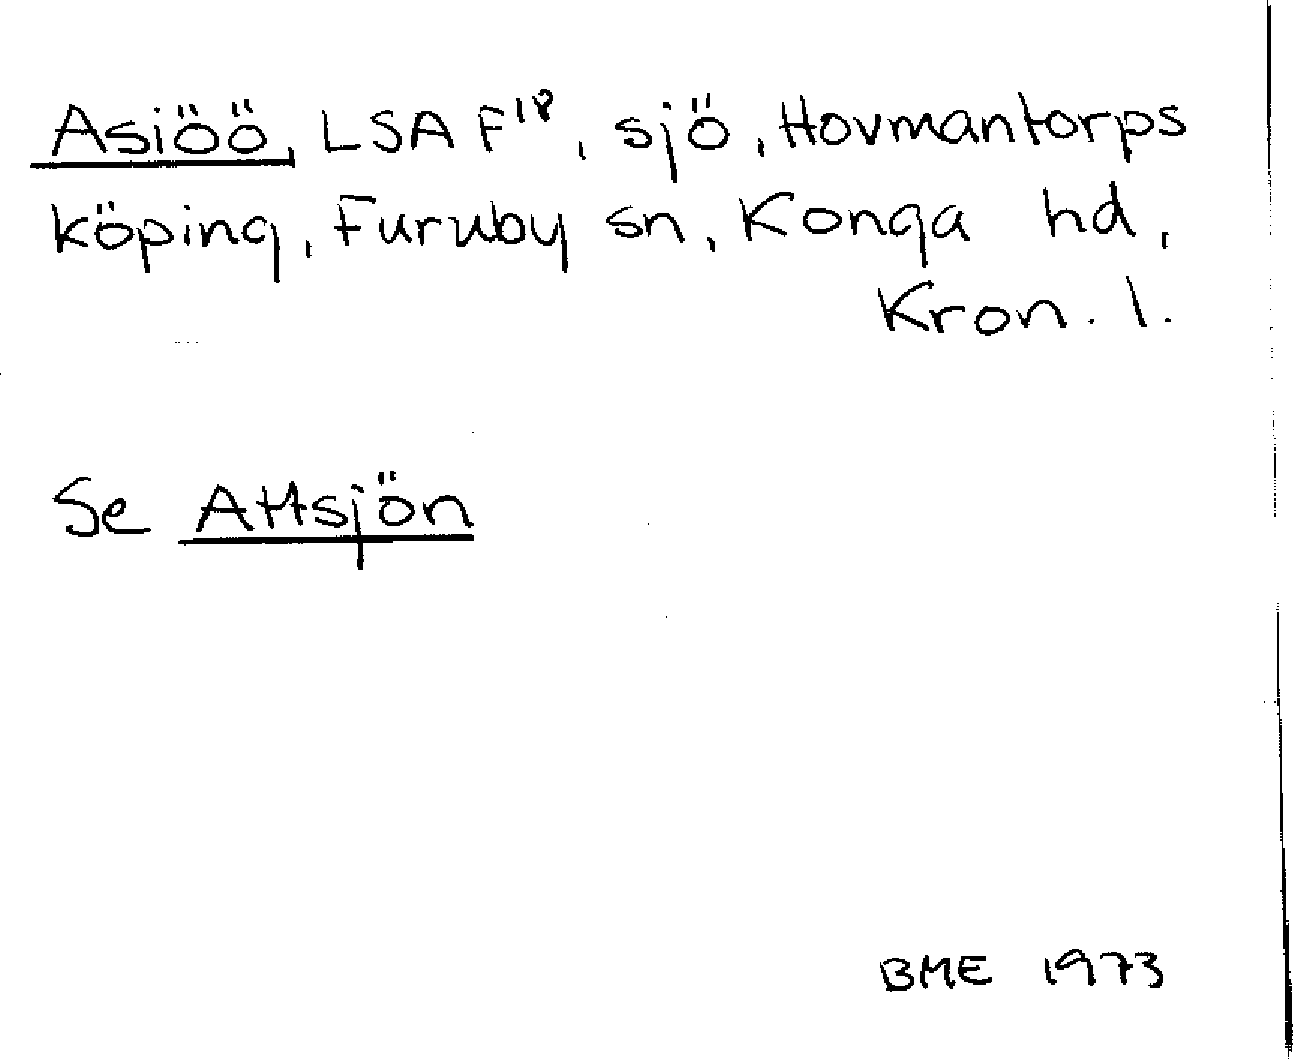 Asiöö, LSA F¹⁸, sjö, Hovmantorps
köping, Furuby sn, Konga hd,
Kron. l.
Se Attsjön
BME 1973